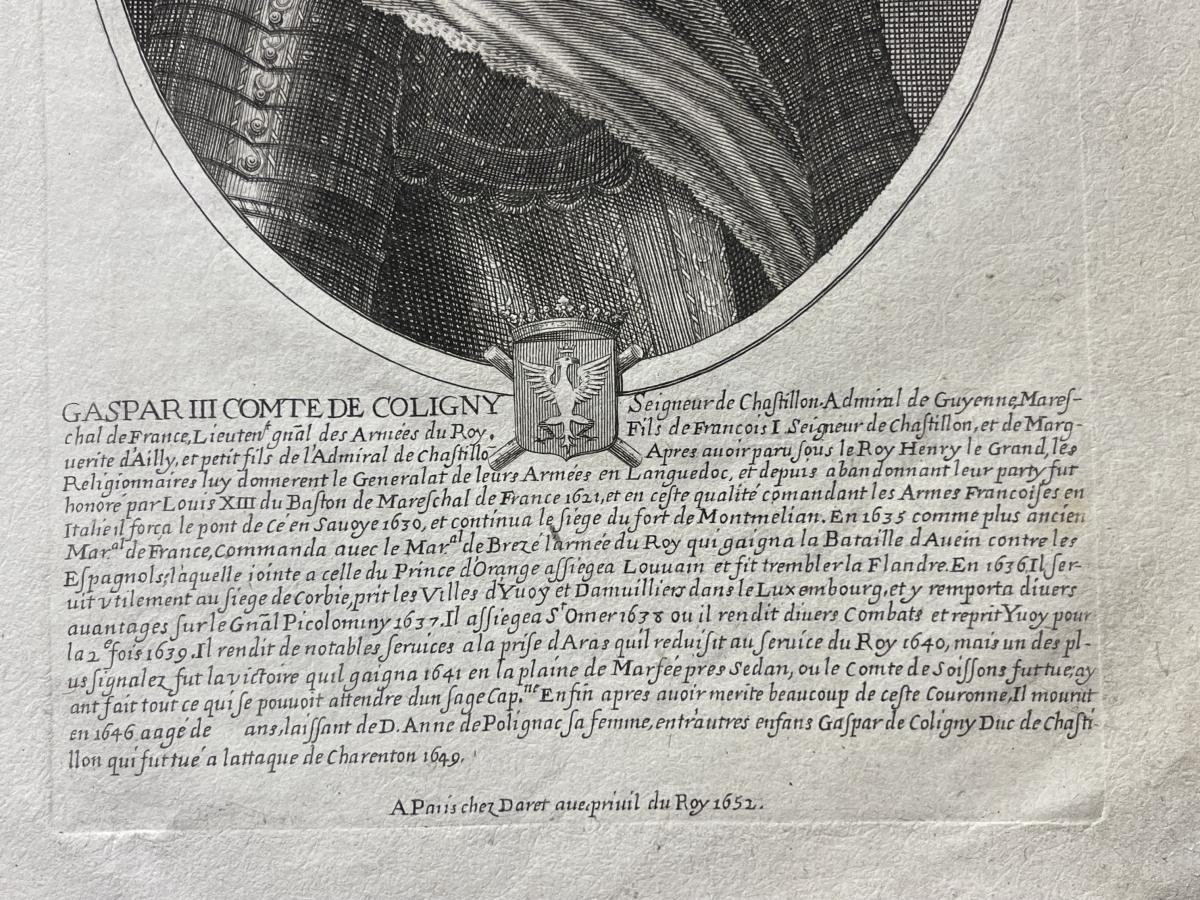 GASPAR III COMTE DE COLIGNY Seigneur de Chaſtillon Admiral de Guyenne, Mareſ-
chal de France, Lieutenᵗ gnãl des Armées du Roy, Fils de Francois I Seigneur de Chaſtillon, et de Marg-
uerite d'Ailly, et petit fils de l'Admiral de Chaſtillo Apres auoir paru ſous le Roy Henry le Grand, les
Religionnaires luy donnerent le Generalat de leurs Armées en Languedoc, et depuis abandonnant leur party fut
honoré par Louis XIII du Baſton de Mareſchal de France 1621, et en ceſte qualité comandant les Armes Francoiſes en
Italie il força le pont de Cé en Sauoye 1630, et continua le ſiége du fort de Montmelian. En 1635 comme plus ancien
Mar.ᵃˡ de France, Commanda auec le Mar.ᵃˡ de Brezé l'armée du Roy qui gaigna la Bataille d'Auein contre les
Eſpagnols; laquelle jointe a celle du Prince d'Orange aſſiegea Louuain et fit trembler la Flandre. En 1636, Il ſer-
uit vtilement au ſiege de Corbie, prit les Villes d'Yuoy et Damuilliers dans le Luxembourg, et y remporta diuers
auantages ſur le Gnãl Picolominy 1637. Il aſſiegea Sᵗ Omer 1638 ou il rendit diuers Combats et reprit Yuoy pour
la 2ᵉ fois 1639. Il rendit de notables ſeruices a la priſe d'Aras quil reduiſit au ſeruice du Roy 1640, mais un des pl-
us ſignalez fut la victoire quil gaigna 1641 en la plaine de Marfée pres Sedan, ou le Comte de Soiſſons fut tue; ay
ant fait tout ce qui ſe pouuoit attendre dun ſage Cap.ⁿᵉ Enfin apres auoir merité beaucoup de ceſte Couronne, Il mourut
en 1646 aagé de ans, laiſſant de D. Anne de Polignac ſa femme, entr'autres enfans Gaſpar de Coligny Duc de Chaſti-
llon qui fut tué a lattaque de Charenton 1649.
A Paris chez Daret auec priuil du Roy 1652.